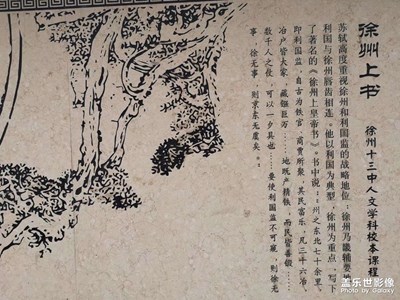 徐州上书
徐州十三中人文学科校本课程
苏轼高度重视徐州和利国监的战略地位：徐州乃畿辅要地
利国与徐州唇齿相连。他以利国为典型，徐州为重点，写下
了著名的《徐州上皇帝书》。书中说：“州之东北七十余里，
即利国监，自古为铁官，商贾所聚，其民富乐，凡三十六冶，
冶户皆大家，藏镪巨万……地既产精铁，而民皆善锻……
数千人之仗，可以一夕具也……要使利国监不可窥，则徐无
事，徐无事，则京东无虞矣。”
盖乐世影像